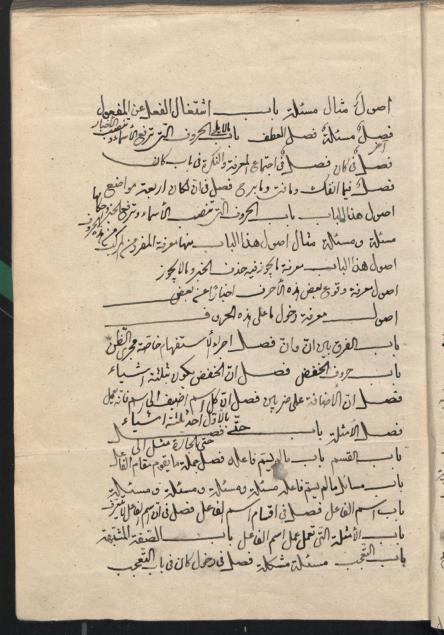 اصول مثال مسئلة باب اشتغال الفعل عن المفعول
فصل مسئلة فصل العطف باب الحروف التى ترفع الأسماء وتنصب الأخبار
فصل فى كان فصل فى اجتماع المعرفة والنكرة فى باب كان
فصل فيما انفك وما فتئ وما برح فصل فى ان لكان اربعة مواضع
اصول هذا الباب باب الحروف التى تنصب الأسماء وترفع الخبر
مسئلة ومسئلة مثال اصول هذا الباب منها معرفة المفرد من المركب
اصول هذا الباب معرفة ما يجوز فيه حذف الخبر وما لا يجوز
اصول معرفة وقوع بعض هذه الأحرف اخبارا عن بعض
اصول معرفة دخول ما على هذه الحروف
باب الفرق بين ان وان فصل اجراء الاستفهام خاصة مجرى الظن
باب حروف الخفض فصل ان الخفض يكون بثلثة اشياء
فصل ان الأضافة على ضربين فصل ان كل اسم اضيف الى اسم فانه
بالأول احد ثلثة اشياء
فصل الأمثلة باب حتى فصل حتى الجارة مثل الى
باب القسم باب ما لم يسم فاعله فصل جملة ما يقوم مقام الفاعل
باب مسائل ما لم يسم فاعله مسئلة ومسئلة ومسئلة ومسئلة
باب اسم الفاعل فصل فى اقسام اسم الفاعل فصل فى ان اسم الفاعل
باب الأمثلة التى تعمل عمل اسم الفاعل باب الصفة المشبهة
باب التعجب مسئلة مشكلة فصل فى دخول كان فى باب التعجب